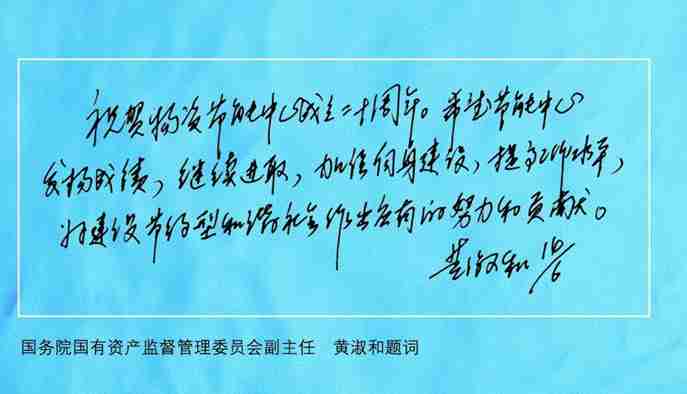 祝贺物资节能中心成立二十周年。希望节能中心
发扬成绩，继续进取，加强自身建设，提高工作水平，
为建设节约型和谐社会作出应有的努力和贡献。
黄淑和 16/6
国务院国有资产监督管理委员会副主任 黄淑和题词